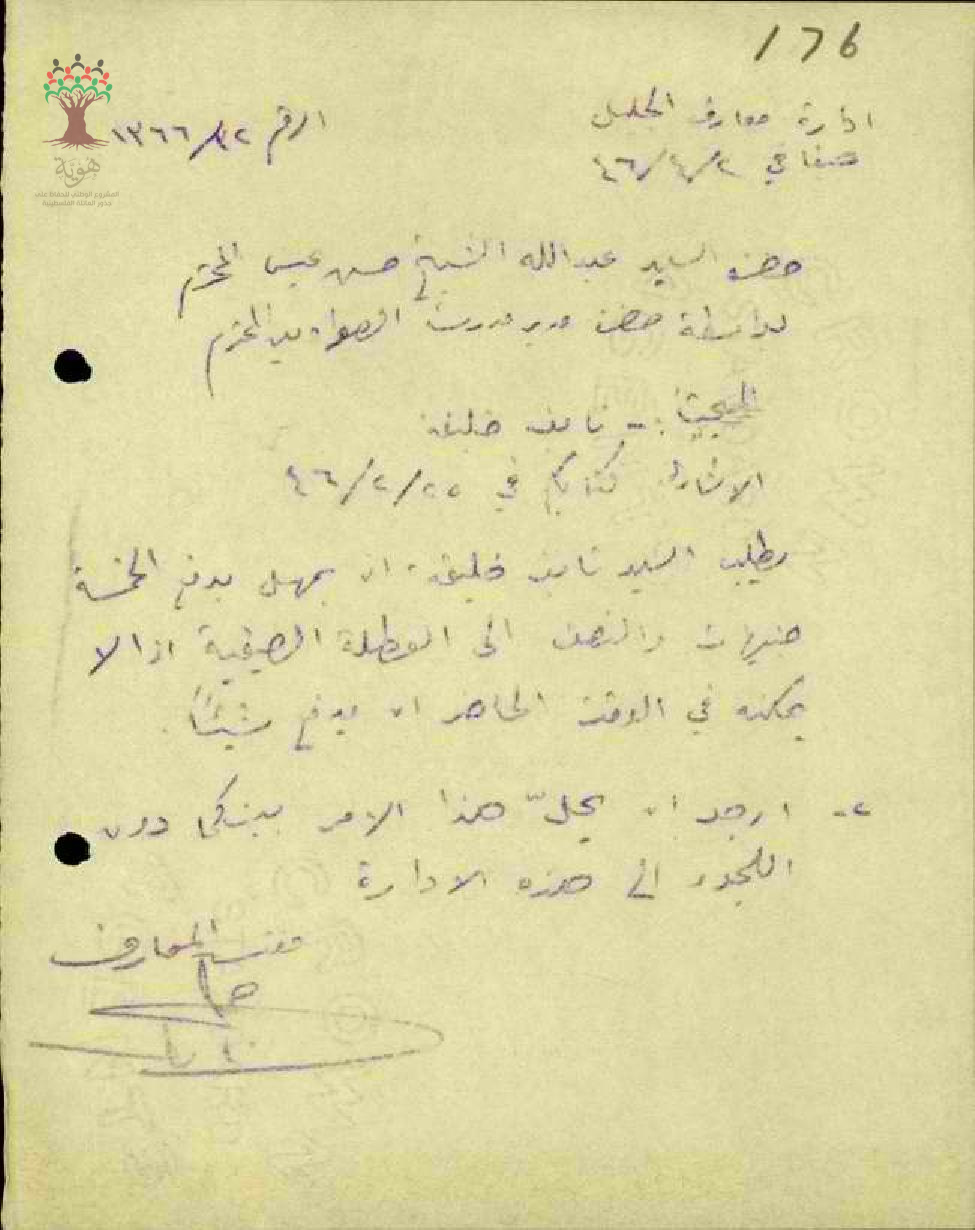 176
ادارة معارف الجليل
الرقم ١٣٦٦/٤٢
صفا في ٤٦/٤/٢
هوية
المشروع الوطني للحفاظ على
جذور العائلة الفلسطينية
حضرة السيد عبدالله الشيخ حسن عيسى المحترم
بواسطة حضرة مدير مدرسة المحترم
نايف خليفة
الاشارة كتابكم في ٤٦/٢/٢٥
يطلب السيد نايف خليفة ان يمهل بدفع الخمسة
جنيهات والنصف الى العطلة الصيفية اذ لا
يمكنه في الوقت الحاضر ان يدفع شيئاً.
٢- ارجو ان يحلّ هذا الامر بينكما دون
اللجوء الى هذه الادارة
مفتش المعارف